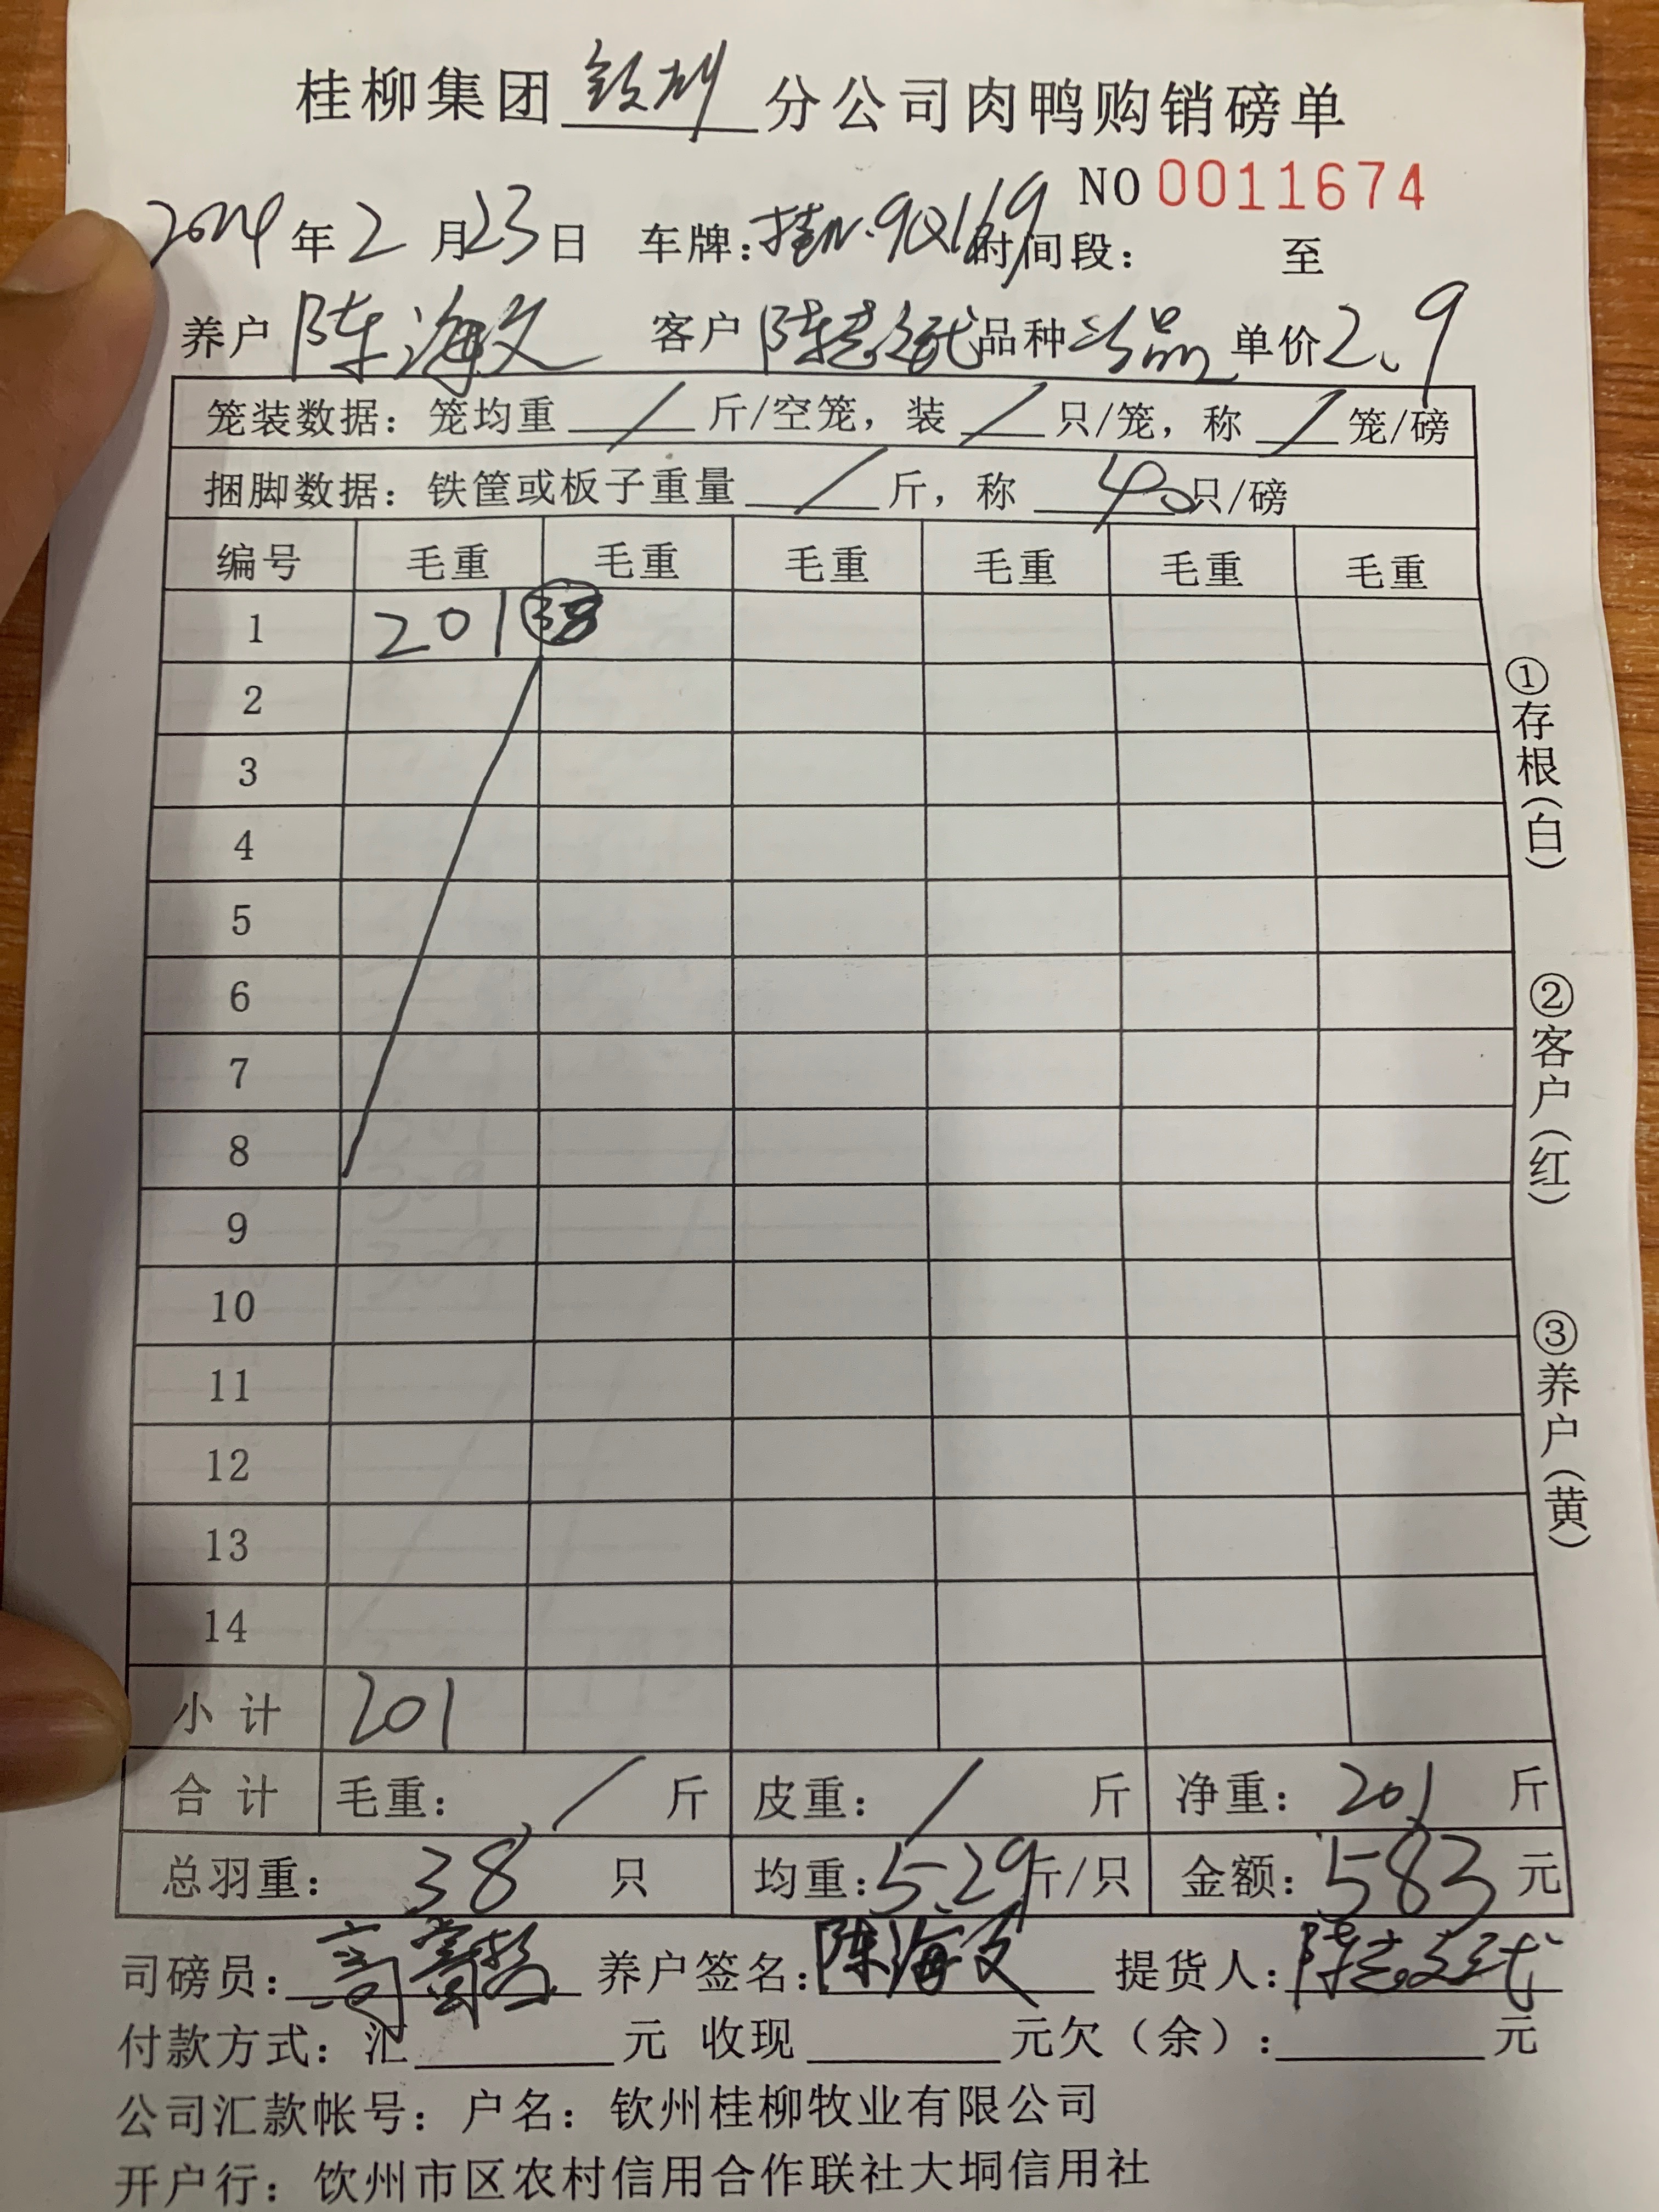 桂柳集团 钦州 分公司肉鸭购销磅单
NO 0011674
2024 年 2 月 23 日 车牌：桂N·9Q169 时间段： 至
养户 陈海文 客户 陈 品种 次品 单价 2.9
笼装数据：笼均重 / 斤/空笼，装 / 只/笼，称 / 笼/磅
捆脚数据：铁筐或板子重量 / 斤，称 40 只/磅
编号 毛重 毛重 毛重 毛重 毛重 毛重
1 201 38
2
3
4
5
6
7
8
9
10
11
12
13
14
小计 201
合计 毛重： / 斤 皮重： / 斤 净重： 201 斤
总羽重： 38 只 均重：5.29 斤/只 金额：583 元
司磅员： 养户签名：陈海文 提货人：陈
付款方式：汇 元 收现 元欠（余）： 元
公司汇款帐号：户名：钦州桂柳牧业有限公司
开户行：钦州市区农村信用合作联社大垌信用社
①存根（白）
②客户（红）
③养户（黄）